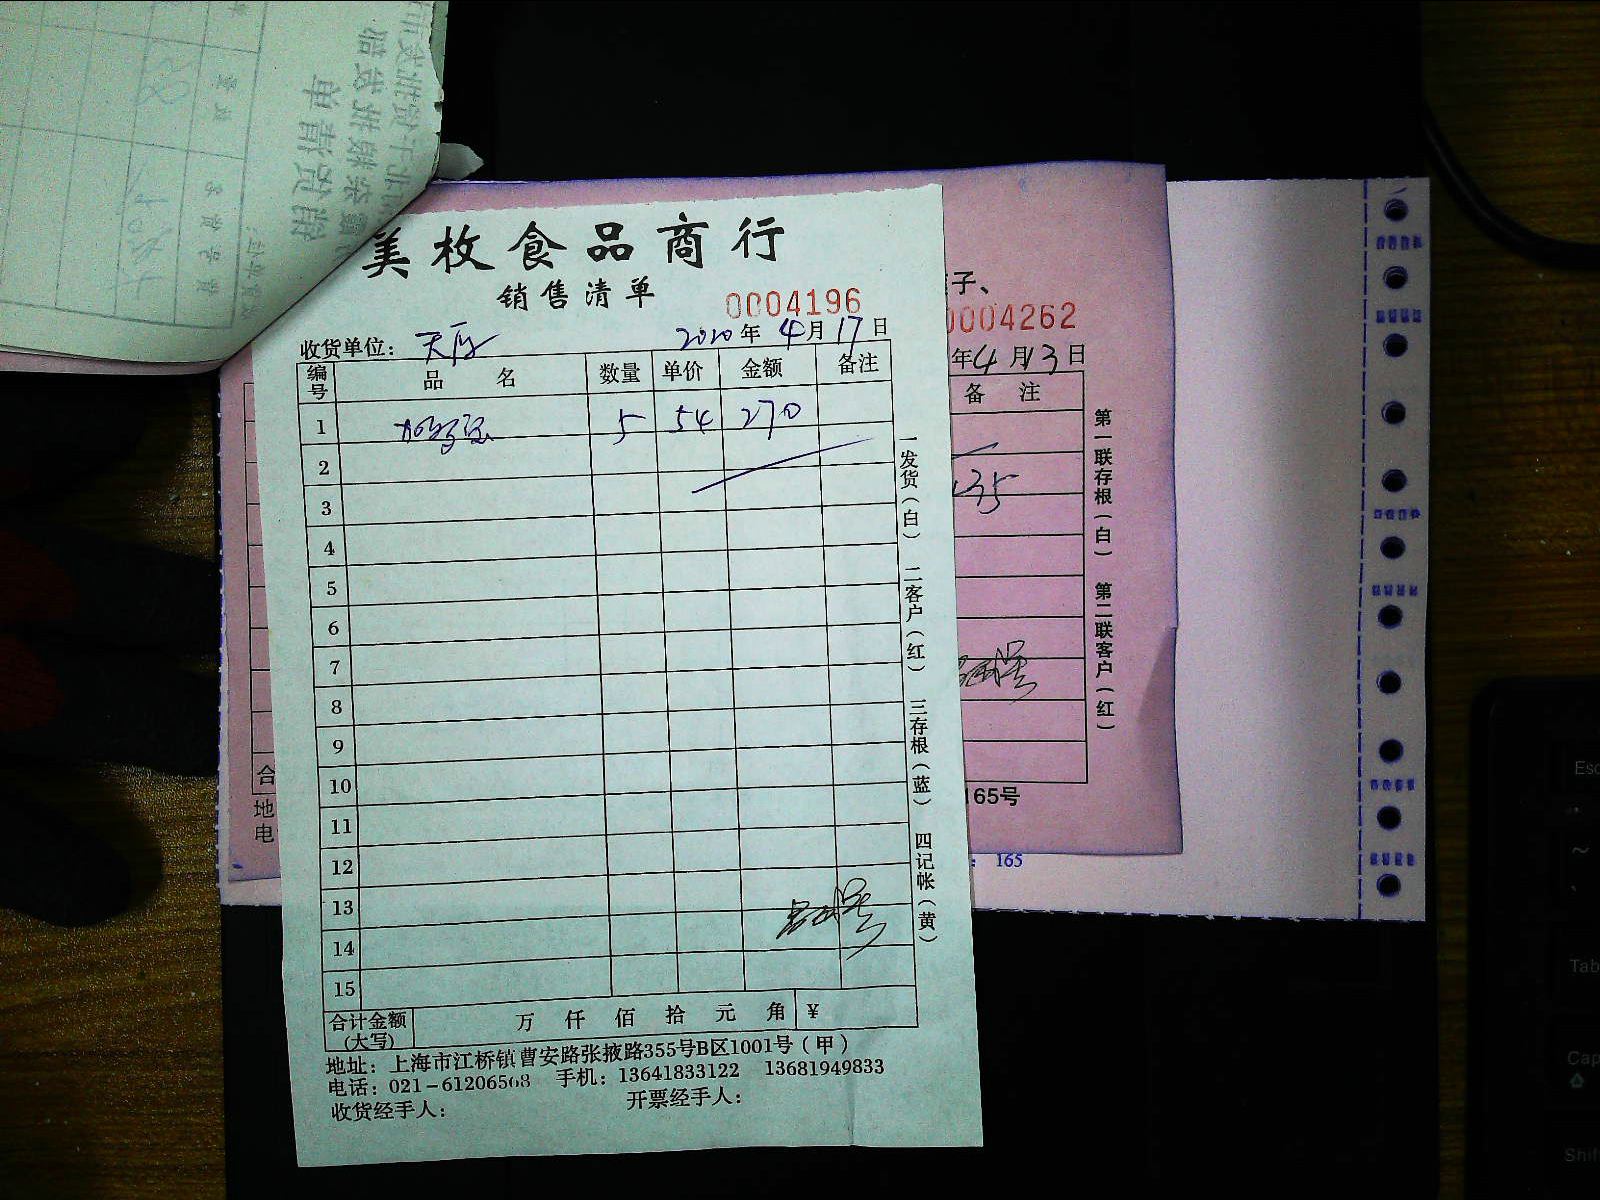 美枚食品商行
销售清单
0004196
收货单位：天府 2020年4月17日
编号 品名 数量 单价 金额 备注
1 5 54 270
2
3
4
5
6
7
8
9
10
11
12
13
14
15
合计金额(大写) 万 仟 佰 拾 元 角 ￥
地址：上海市江桥镇曹安路张掖路355号B区1001号（甲）
电话：021-61206568 手机：13641833122 13681949833
收货经手人： 开票经手人：
一发货（白） 二客户（红） 三存根（蓝） 四记帐（黄）
子、
0004262
年4月13日
备注
135
第一联存根（白） 第二联客户（红）
165号
合
地
电
165
Esc
~
Tab
Cap
Shift